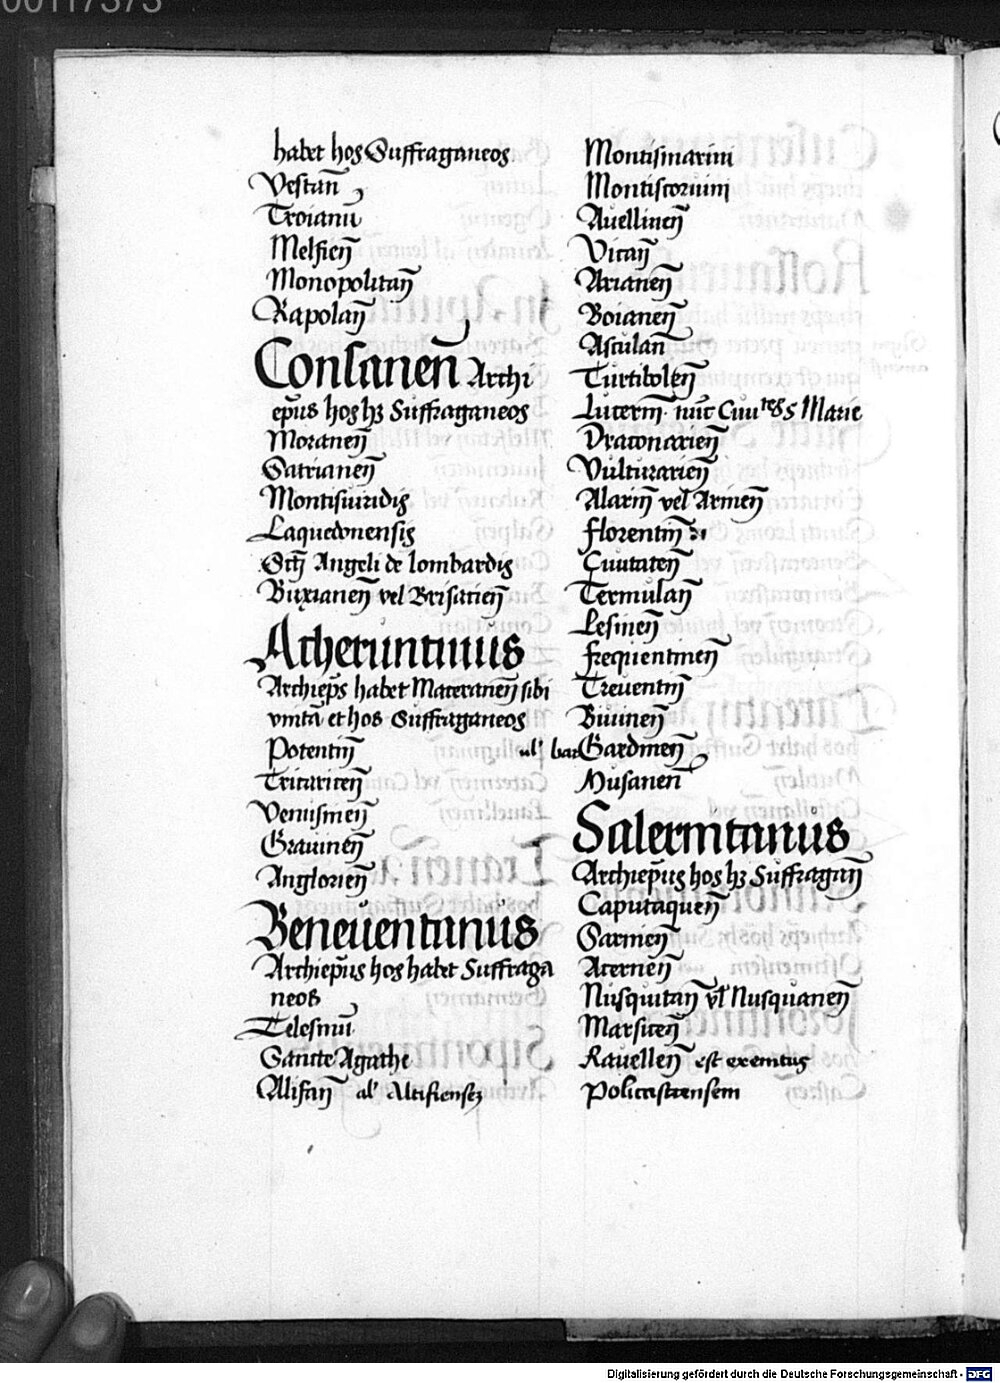 00117373
habet hos Suffraganeos
Vestan̄
Troianū
Melfien̄
Monopolitan̄
Rapolan̄
Consanen̄ Archi
ep̄us hos hꝫ Suffraganeos
Moranen̄
Satrianen̄
Montisuiridis
Laquedonensis
Sct̄i Angeli de lombardis
Buxianen̄ vel Brisacien̄
Acheruntinus
Archiep̄s habet Materanen̄ sibi
vnitā et hos Suffraganeos
Potentin̄
Tricaricen̄
Venusinen̄
Grauinen̄
Anglonen̄
Beneuentanus
Archiep̄us hos habet Suffraga
neos
Telesinū
Sancte Agathe
Alifan̄ al' Altifienseȝ
Montismarini
Montiscoruini
Auellinen̄
Vican̄
Arianen̄
Boianen̄
Asculan̄
Turtibolen̄
Lucerin̄ nūc Ciuitatis S Marie
Draconarien̄
Vulturarien̄
Alarin̄ vel Armen̄
florentin̄
Ciuitaten̄
Termulan̄
Lesinen̄
frequentinen̄
Treuentin̄
Biuinen̄
al' bar Gardinen̄
Musanen̄
Salernitanus
Archiep̄us hos hꝫ Suffragan̄
Caputaquen̄
Sarnien̄
Acernen̄
Nusquitan̄ vl' Nusquanen̄
Marsicen̄
Rauellen̄ est exemtus
policastrensem
Digitalisierung gefördert durch die Deutsche Forschungsgemeinschaft - DFG